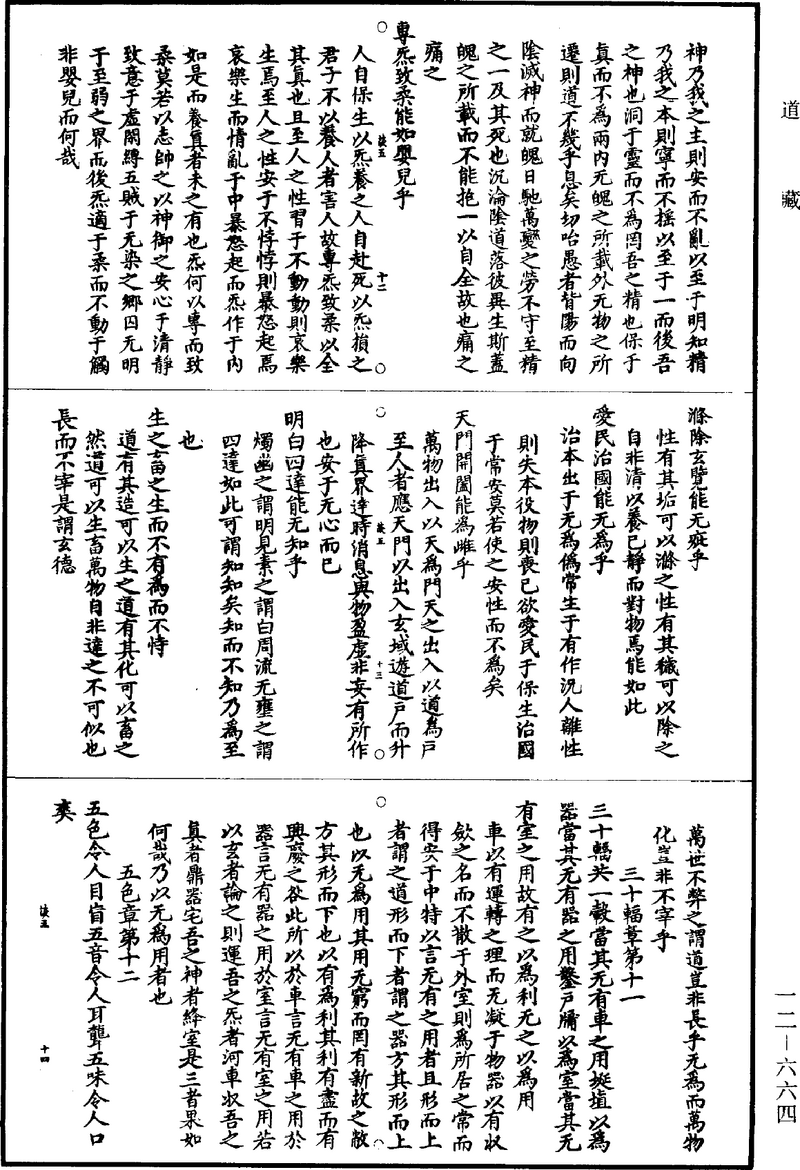 道藏
神乃我之主則安而不亂以至于明知精
乃我之本則寧而不搖以至于一而後吾
之神也洞于靈而不為罔吾之精也保于
真而不為兩内无魄之所載外无物之所
遷則道不幾乎息矣切咍愚者背陽而向
陰滅神而就魄日馳萬變之勞不守至精
之一及其死也沉淪陰道落彼異生斯蓋
魄之所載而不能抱一以自全故也痛之
痛之
專炁致柔能如嬰兒乎
人自保生以炁養之人自赴死以炁損之
君子不以養人者害人故專炁致柔以全
其真也且至人之性習于不動動則哀樂
生焉至人之性安于不悖悖則暴怒起焉
哀樂生而情亂于中暴怒起而炁作于内
如是而養真者未之有也炁何以專而致
柔莫若以志帥之以神御之安心于清靜
致意于虛閑縛五賊于无染之鄉囚无明
于至弱之界而後炁適于柔而不動于觸
非嬰兒而何哉
談五
十二
滌除玄覽能无疵乎
性有其垢可以滌之性有其穢可以除之
自非清以養己靜而對物焉能如此
愛民治國能无為乎
治本出于无為偽常生于有作況人離性
則失本役物則喪己欲愛民于保生治國
于常安莫若使之安性而不為矣
天門開闔能為雌乎
萬物出入以天為門天之出入以道為戶
至人者應天門以出入玄域遊道戶而升
降真界達時消息與物盈虛非妄有所作
也安于无心而已
明白四達能无知乎
燭幽之謂明見素之謂白周流无壅之謂
四達如此可謂知知矣知而不知乃為至
也
生之畜之生而不有為而不恃
道有其造可以生之道有其化可以畜之
然道可以生畜萬物自非達之不可似也
長而不宰是謂玄德
談五
十三
萬世不弊之謂道豈非長乎无為而萬物
化豈非不宰乎
三十輻章第十一
三十輻共一轂當其无有車之用埏埴以為
器當其无有器之用鑿戶牖以為室當其无
有室之用故有之以為利无之以為用
車以有運轉之理而无凝于物器以有収
斂之名而不散于外室則為所居之常而
得安于中特以言无有之用者且形而上
者謂之道形而下者謂之器方其形而上
也以无為用其用无窮而罔有新故之敝
方其形而下也以有為利其利有盡而有
興廢之欲此所以於車言无有車之用於
器言无有器之用於室言无有室之用若
以玄者論之則運吾之炁者河車収吾之
真者鼎器宅吾之神者絳室是三者果如
何哉乃以无為用者也
五色章第十二
五色令人目盲五音令人耳聾五味令人口
爽
談五
十四
一二—六六四